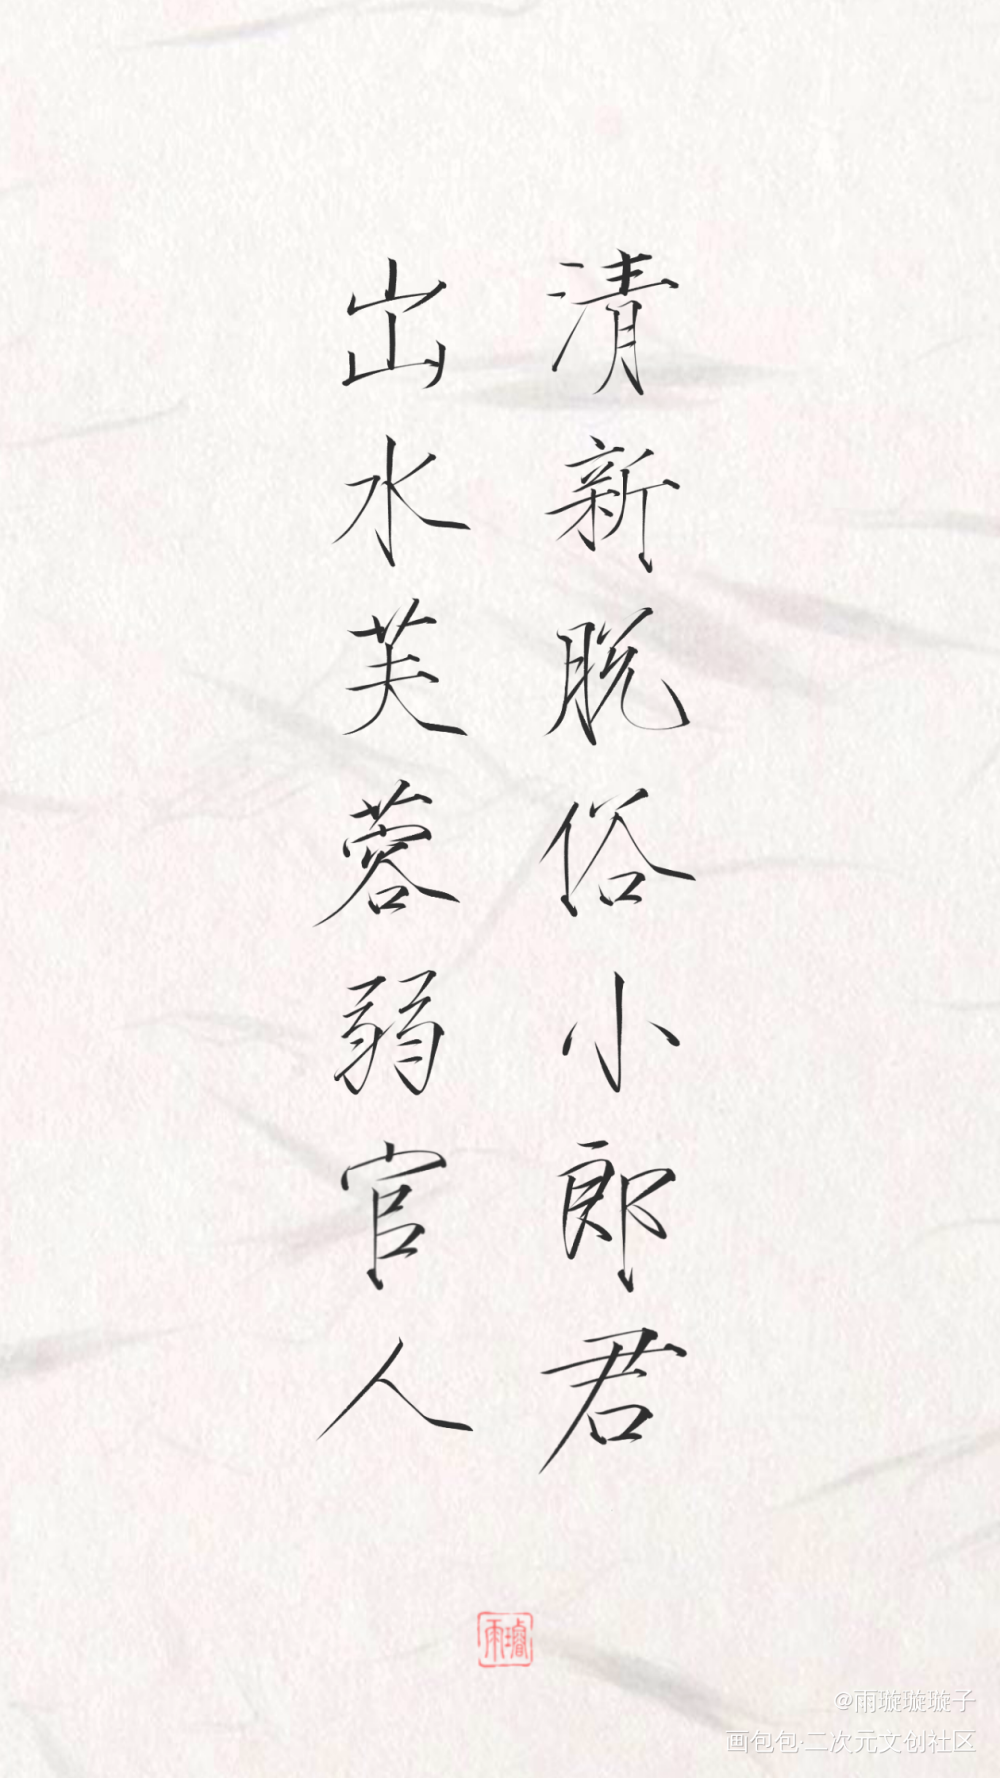 清新脱俗小郎君
出水芙蓉弱官人
雨璿
@雨璇璇璇子
画包包·二次元文创社区